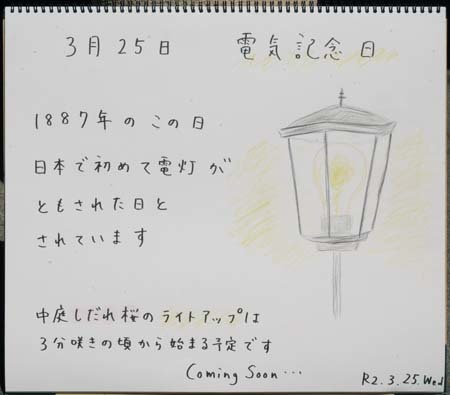 3月25日 電気記念日
1887年のこの日
日本で初めて電灯が
ともされた日と
されています
中庭しだれ桜のライトアップは
3分咲きの頃から始まる予定です
Coming Soon・・・
R2.3.25.Wed